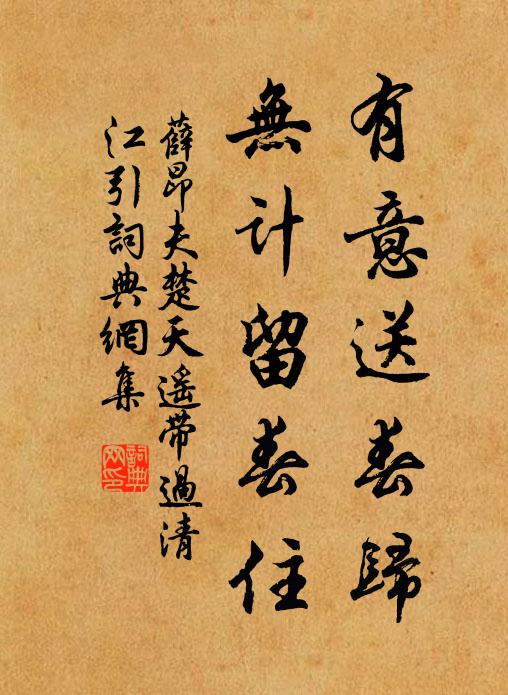 有意送春歸
無計留春住
薛昂夫楚天遥带過清
江引詞典網集
詞典
网印